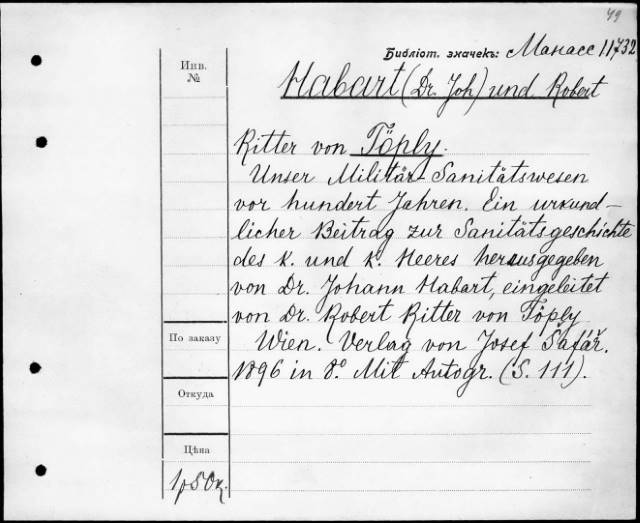 49
Библіот. значекъ: Манасс 11732
Инв.
№
Habart (Dr. Joh) und Robert
Ritter von Töply.
Unser Militär-Sanitätswesen
vor hundert Jahren. Ein urkund-
licher Beitrag zur Sanitätsgeschichte
des k. und k. Heeres herausgegeben
von Dr. Johann Habart, eingeleitet
von Dr. Robert Ritter von Töply
Wien. Verlag von Josef Šafář.
1896 in 8° Mit Autogr. (S. 111).
По заказу
Откуда
Цѣна
1р50к.